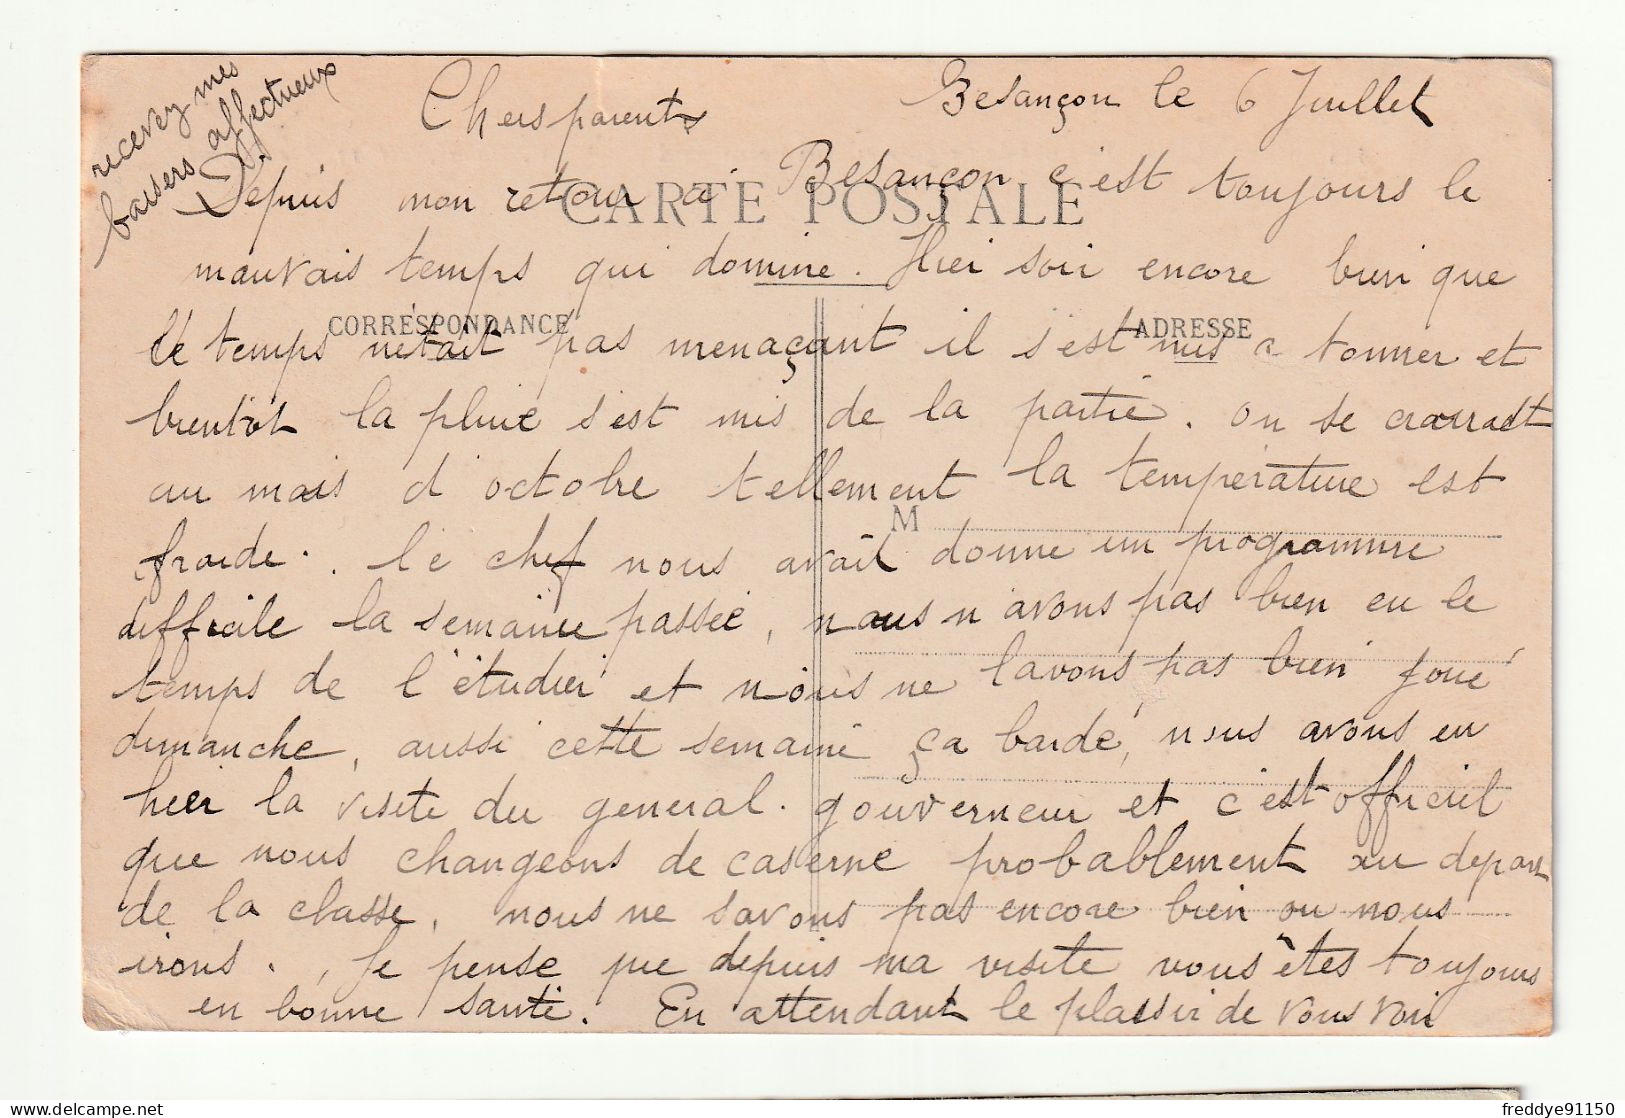 Besançon le 6 Juillet
Chers parents
CARTE POSTALE
Depuis mon retour à Besançon c'est toujours le
mauvais temps qui domine. Hier soir encore bien que
CORRESPONDANCE
ADRESSE
le temps nétait pas menaçant il s'est mis a tonner et
bientot la pluie s'est mis de la partie. on se croirait
au mois d'octobre tellement la température est
M
froide. le chef nous avait donné un programme
difficile la semaine passée, nous n'avons pas bien eu le
temps de l'étudier et nous ne lavons pas bien joué
dimanche, aussi cette semaine ça barde, nous avons eu
hier la visite du general. gouverneur et c'est officiel
que nous changeons de caserne probablement au depart
de la classe, nous ne savons pas encore bien ou nous
irons. Je pense que depuis ma visite vous êtes toujours
en bonne santé. En attendant le plaisir de vous voir
recevez mes
baisers affectueux
freddye91150